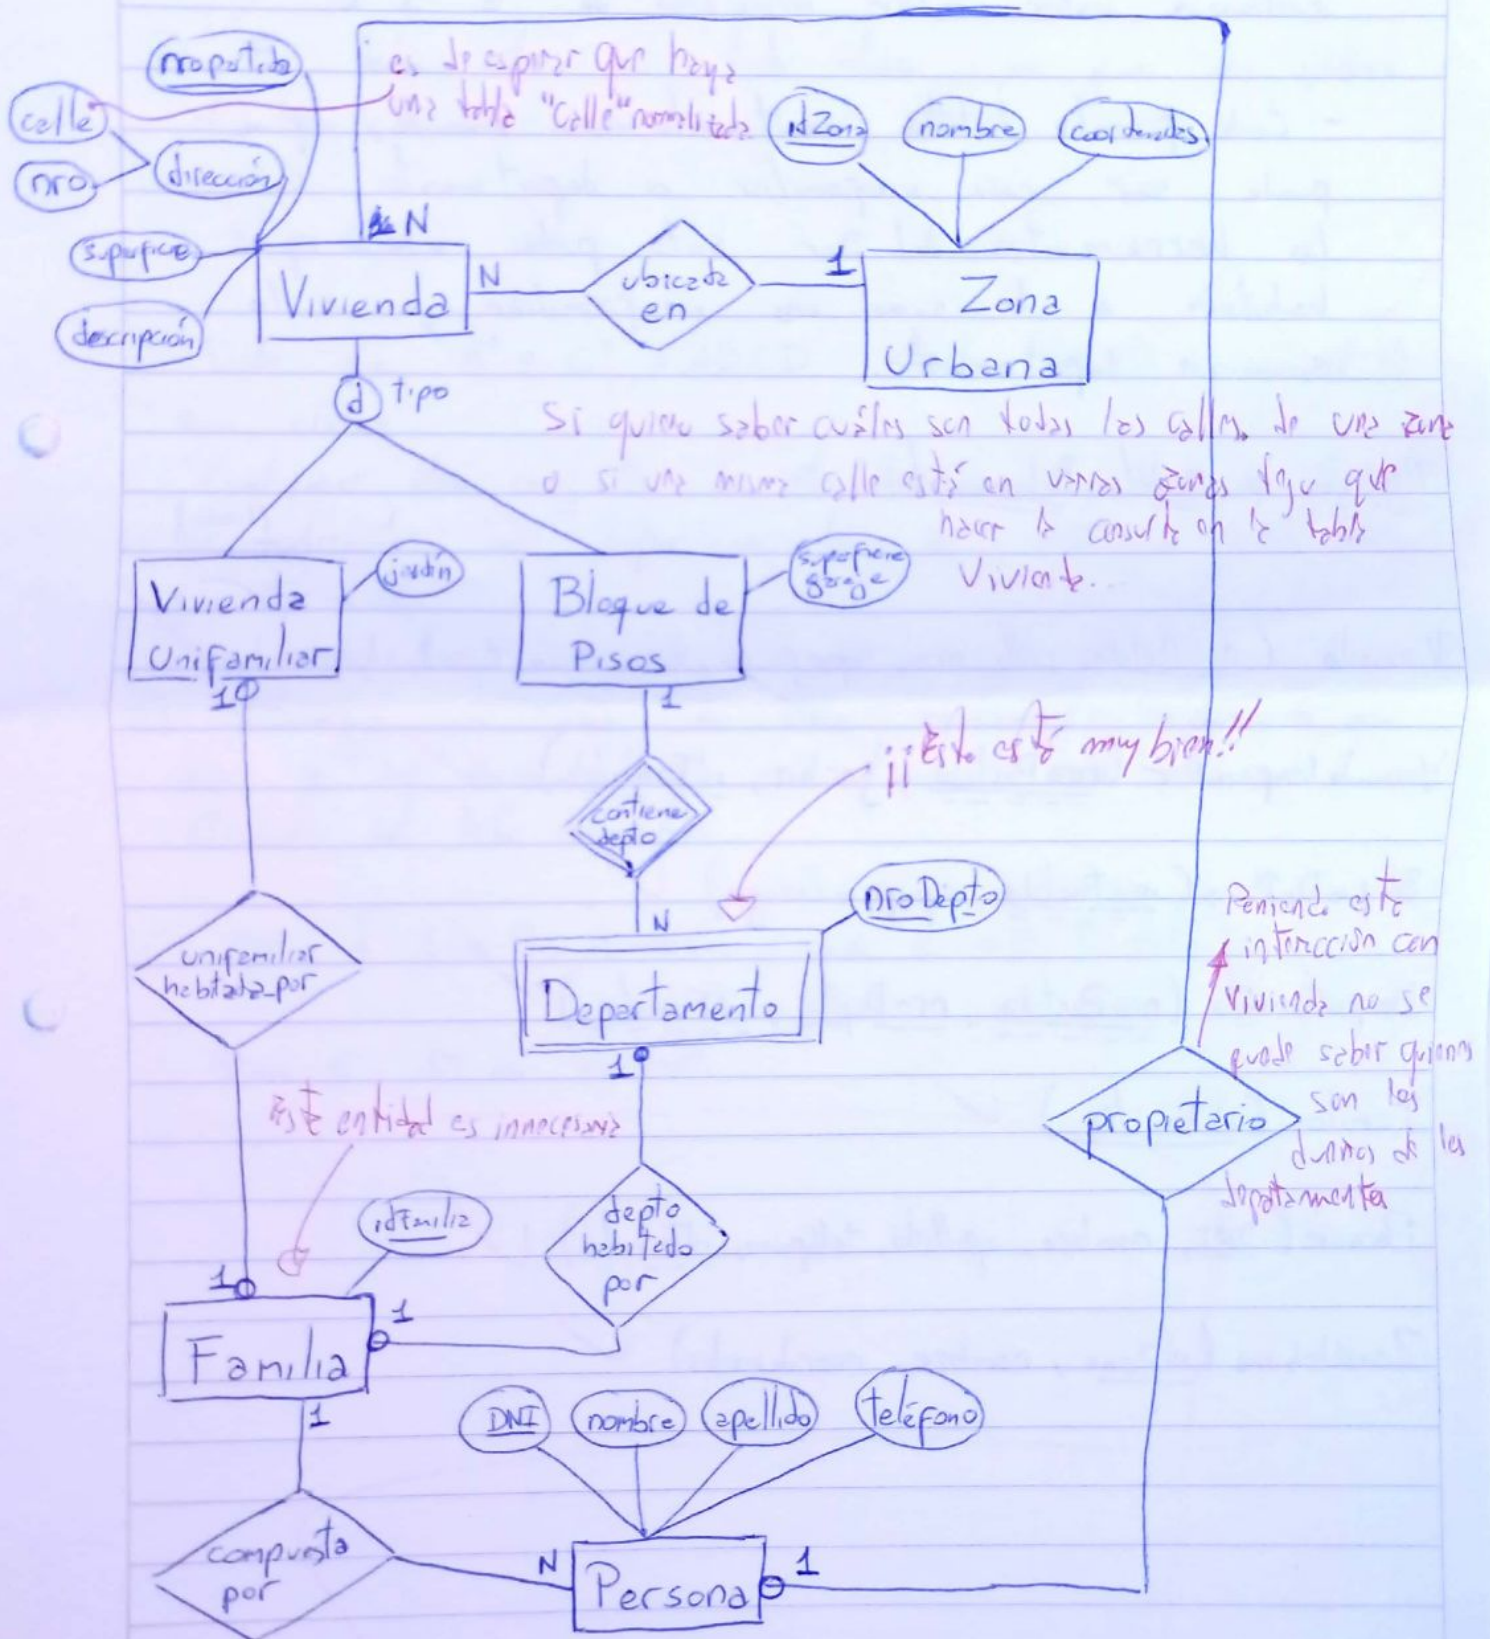 nropartida
es de esperar que haya
una tabla "Calle" normalizada
calle
nro
dirección
idZona
nombre
coordenadas
superficie
descripción
N
Vivienda
N
ubicada
en
1
Zona
Urbana
d
tipo
Si quiero saber cuáles son todas las calles de una zona
o si una misma calle está en varias zonas tengo que
hacer la consulta en la tabla
Vivienda.
Vivienda
Unifamiliar
jardín
Bloque de
Pisos
superficie
garaje
1
1
¡¡Esto está muy bien!!
contiene
depto
N
nroDepto
unifamiliar
habitada_por
Departamento
Poniendo esta
interacción con
vivienda no se
puede saber quienes
son los
dueños de los
departamentos
1
propietario
Esta entidad es innecesaria
idFamilia
depto
habitado
por
1
1
Familia
1
DNI
nombre
apellido
teléfono
compuesta
por
N
Persona
1